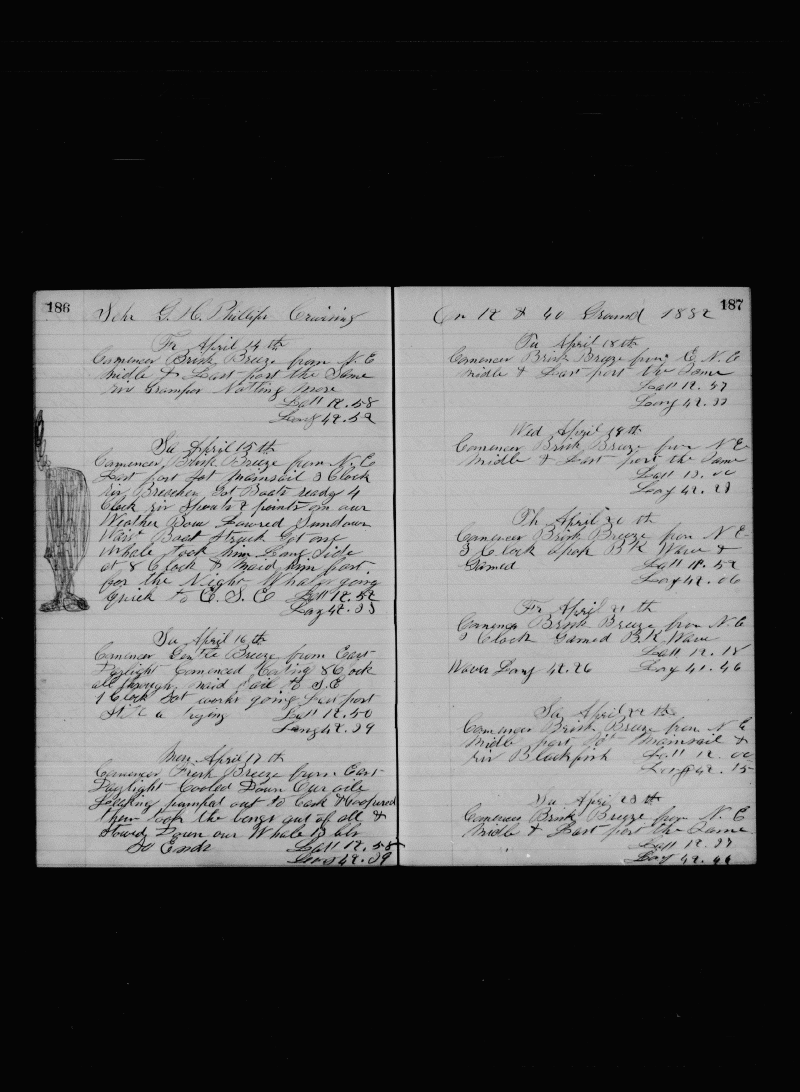 186
Schr G. H. Phillips Cruising
Fr April 14 th
Comences Brisk Breeze from N. E
Midle & Last part the Same
riv Grampos Nothing more
Latt 12.58
Long 42.52
Sa April 15 th
Comences Brisk Breeze from N. E
Last part Jot Mainsail 3 Clock
riv Breaches Got Boats ready 4
Clock riv Spouts 2 points on our
Weather Bow Lowred Sundown
Waist Boat Struck Got one
Whale took him Long Side
at 8 Clock & Maid him fast
for the Night Whales going
Quick to E. S. E Latt 12.52
Long 42.33
Su April 16 th
Comences Gentle Breeze from East
Daylight Comenced Cutting 8 Clock
all through Maid Sail to S. E
1 Clock Got works going Last part
Still a Trying Latt 12.50
Long 42.29
Mon April 17 th
Comences Fresh Breeze from East
Daylight Cooled Down Our oile
pumpt out to Cask & Coopered
them took the bengs out of all &
Stowed Down our Whale
So Ends Latt 12.58
Long 42.29
187
On 12 & 40 Ground 1882
Tu April 18 th
Comences Brisk Breeze from E. N. E
Midle & Last part the Same
Latt 12.47
Long 42.33
Wed April 19 th
Comences Brisk Breeze from N E
Midle & Last part the Same
Latt 13.00
Long 42.23
Th April 20 th
Comences Brisk Breeze from N E
3 Clock Spok B K Wave &
Gamed Latt 11.52
Long 42.06
Fr April 21 th
Comences Brisk Breeze from N. E
Clock Gamed B K Wave
Latt 12.18
Waves Long 42.26 Long 41.46
Sa April 22 th
Comences Brisk Breeze from N E
Midle part Jot Mainsail &
riv Blackfish Latt 12.00
Long 42.15
Su April 23 th
Comences Brisk Breeze from N. E
Midle & Last part the Same
Latt 12.37
Long 42.44